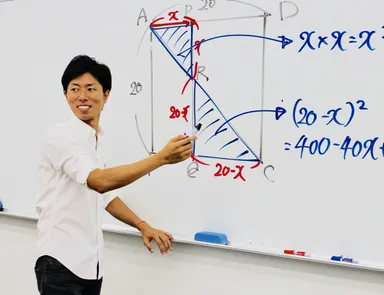 20
A
x
P
D
x
x × x = x²
R
20
20-x
(20-x)²
=400-40x+
Q
20-x
C